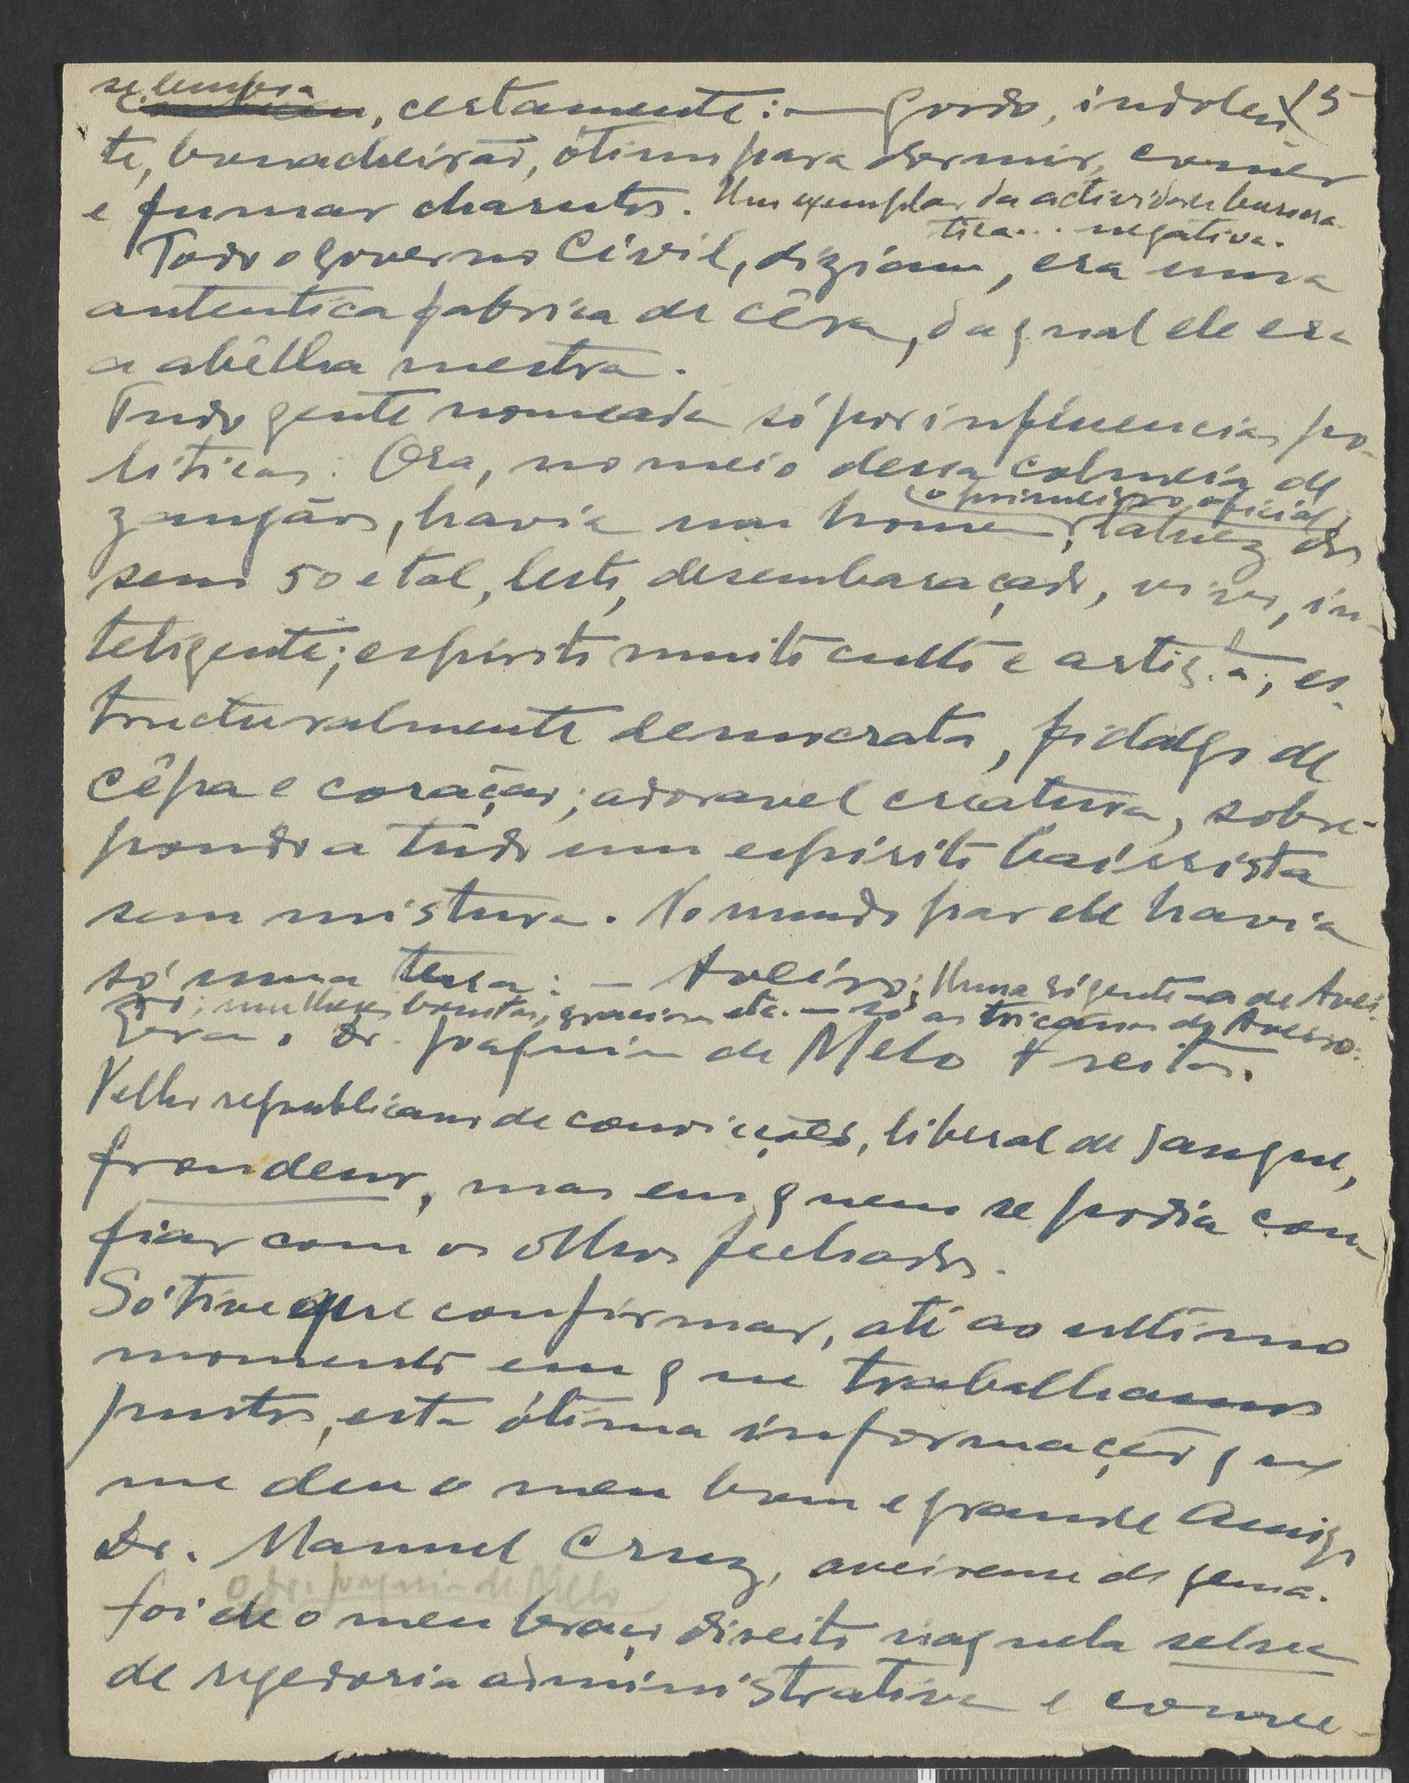 se lembra
, certamente: — Gordo, indolen 15
te, bonacheirão, ótimo para dormir, comer
e fumar charutos. Um exemplar da actividade burocra-
tica... negativa.
Todo o Governo Civil, diziam, era uma
autentica fabrica de cêra, da qual ele era
a abêlha mestra.
Tudo gente nomeada só por influencias po-
liticas. Ora, no meio dessa colmeia de
(o primeiro oficial)
zangãos, havia um homem, talvez dos
seus 50 e tal, lesto, desembaraçado, vivo, in-
teligente; espirito muito culto e artista; es-
tructuralmente democrata, fidalgo de
cêpa e coração; adoravel creatura, sobre-
pondo a tudo um espirito bairrista
sem mistura. No mundo par ele havia
só uma terra: — Aveiro; Uma gente — a de Avei-
ro; mulheres bonitas, graciosas etc. — só as tricanas de Aveiro.
Era o Dr. Joaquim de Melo Freitas.
Velho republicano de convicções, liberal de sangue,
frondeur, mas em quem se podia con
fiar com os olhos fechados.
Só tive que confirmar, até ao ultimo
momento em que trabalhamos
juntos, esta ótima informação que
me deu o meu bom e grande Amigo
Dr. Manuel Cruz, aveirense de gema.
O Dr. Joaquim de Melo
foi ele o meu braço direito naquela selva
de regedoria administrativa e conse-